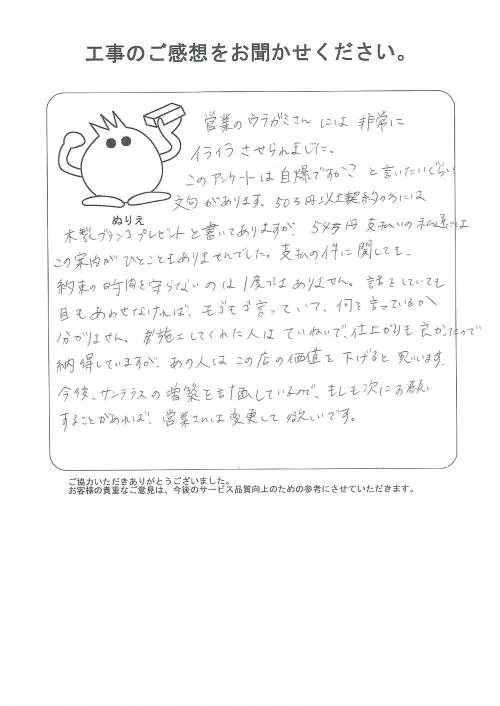 工事のご感想をお聞かせください。
営業のウラガミさん には 非常に
イライラ させられました。
このアンケートは自爆ですか? と言いたいぐらい
文句があります。50万円以上契約の方には
ぬりえ
木製ブランコプレゼントと書いてありますが、54万円支払いの私達には
この案内がひとこともありませんでした。支払の件に関しても、
約束の時間を守らないのは1度ではありません。話をしていても
目もあわせなければ、モゴモゴ言っていて、何を言っているか
分かりません。施工してくれた人は ていねいで、仕上がりも良かったので
納得していますが、あの人は この店の価値を下げると思います。
今後、サンテラスの増築を計画しているので、もしも次にお願い
することがあれば、営業さんは変更して欲しいです。
ご協力いただきありがとうございました。
お客様の貴重なご意見は、今後のサービス品質向上のための参考にさせていただきます。